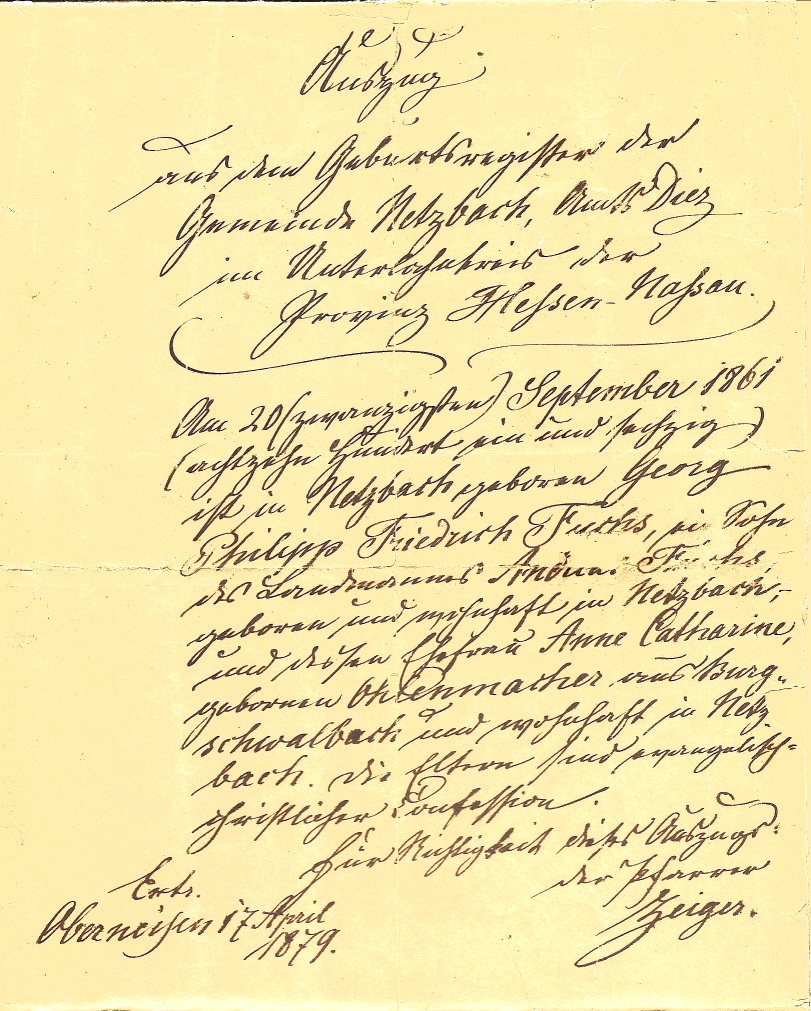 Auszug
aus dem Geburtsregister der
Gemeinde Netzbach, Amts Diez
im Unterlahnkreis der
Provinz Hessen-Nassau.
Am 20 (zwanzigsten) September 1861
(achtzehn Hundert ein und sechzig)
ist in Netzbach geboren Georg
Philipp Friedrich Fuchs, ein Sohn
des Landmannes Fuchs,
geboren und wohnhaft in Netzbach,
und dessen Ehefrau Anne Catharine,
gebornen Ohlenmacher aus Burg-
schwalbach und wohnhaft in Netz
bach. Die Eltern sind evangelisch-
christlicher Confession.
Für Richtigkeit dieses Auszugs:
der Pfarrer
Zeiger.
Oberneisen 17 April
1879.